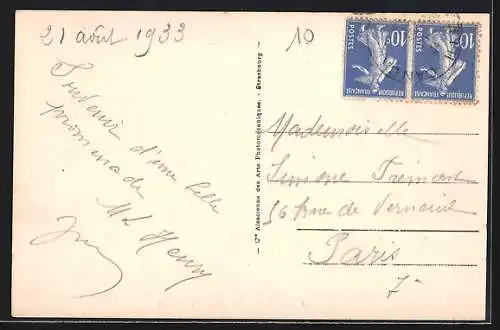 21 août 1933
Souvenir d'une belle
promenade
Mt Henry
10
10c POSTES
REPUBLIQUE FRANÇAISE
10c POSTES
REPUBLIQUE FRANÇAISE
— Cie Alsacienne des Arts Photomécaniques. - Strasbourg —
Mademoiselle
Simone Fremont
56 rue de Verneuil
Paris
7e